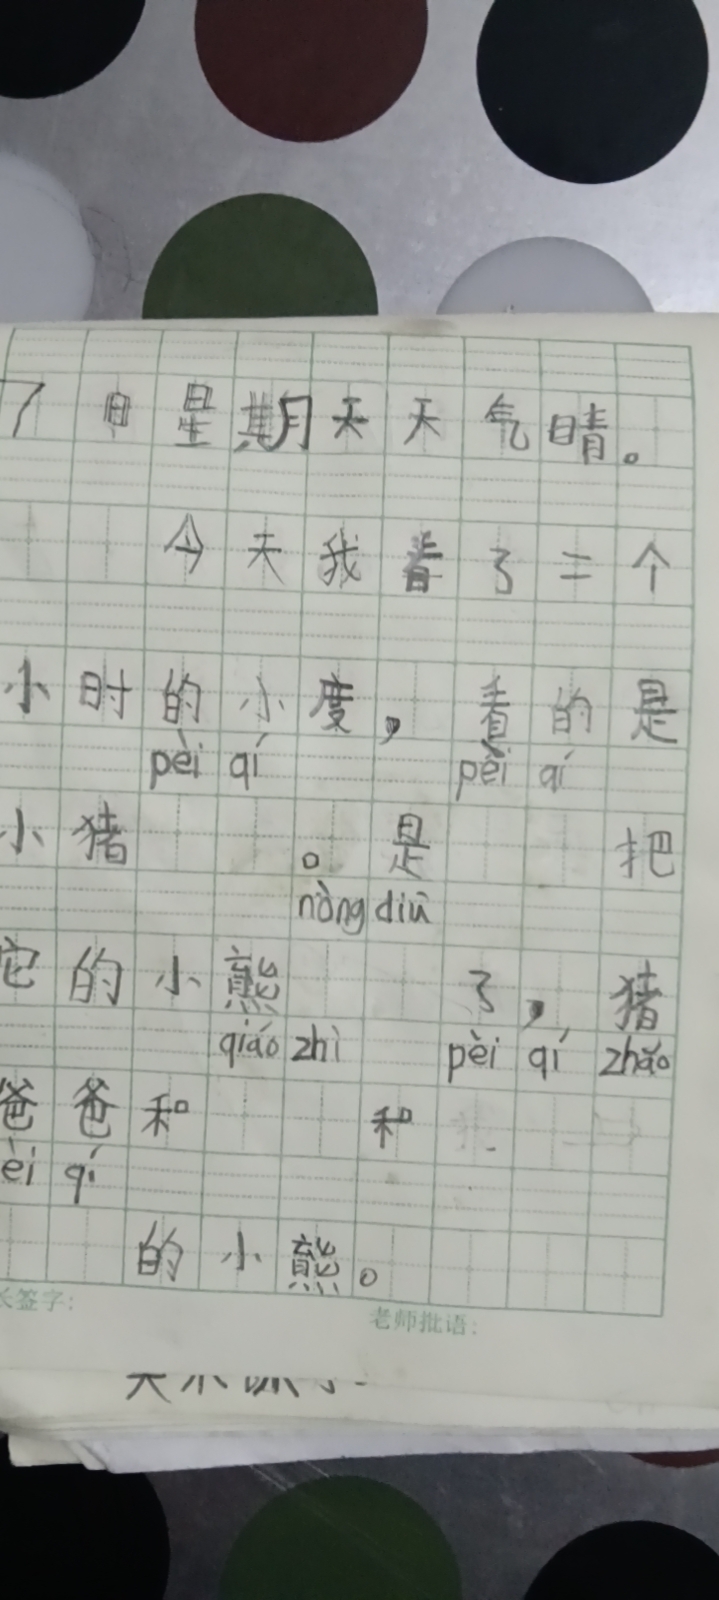 7日星期天天气晴。
今天我看了二个
小时的小度，看的是
pèi qí pèi qí
小猪 。是 把
nòng diū
它的小熊 了，猪
qiáo zhì pèi qí zhǎo
爸爸和 和
èi qí
的小熊。
长签字：
老师批语：